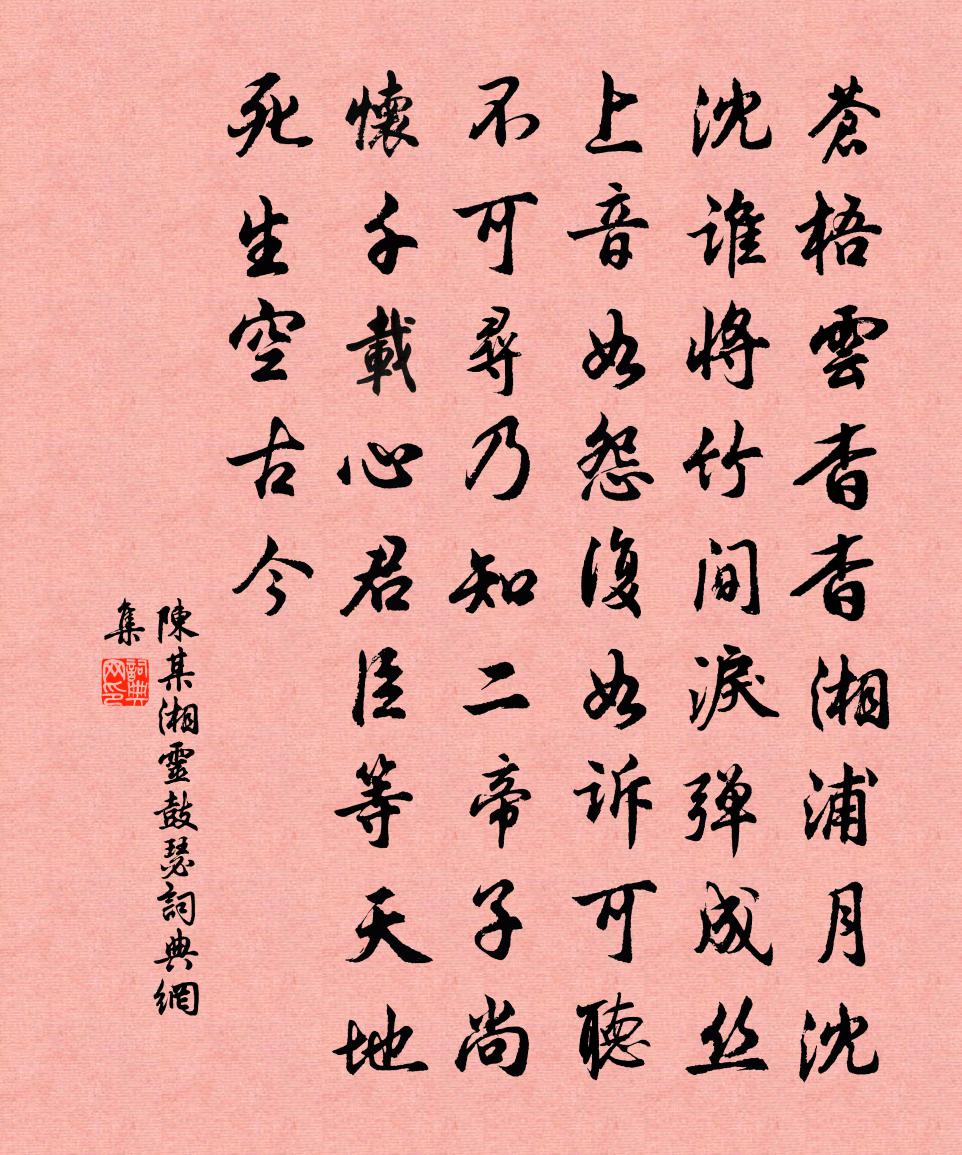 蒼梧雲杳杳湘浦月沈
沈誰將竹间淚弹成丝
上音如怨復如诉可聽
不可尋乃知二帝子尚
懷千載心君臣等天地
死生空古今
陳某湘靈鼓瑟詞典網
集
詞典
网印